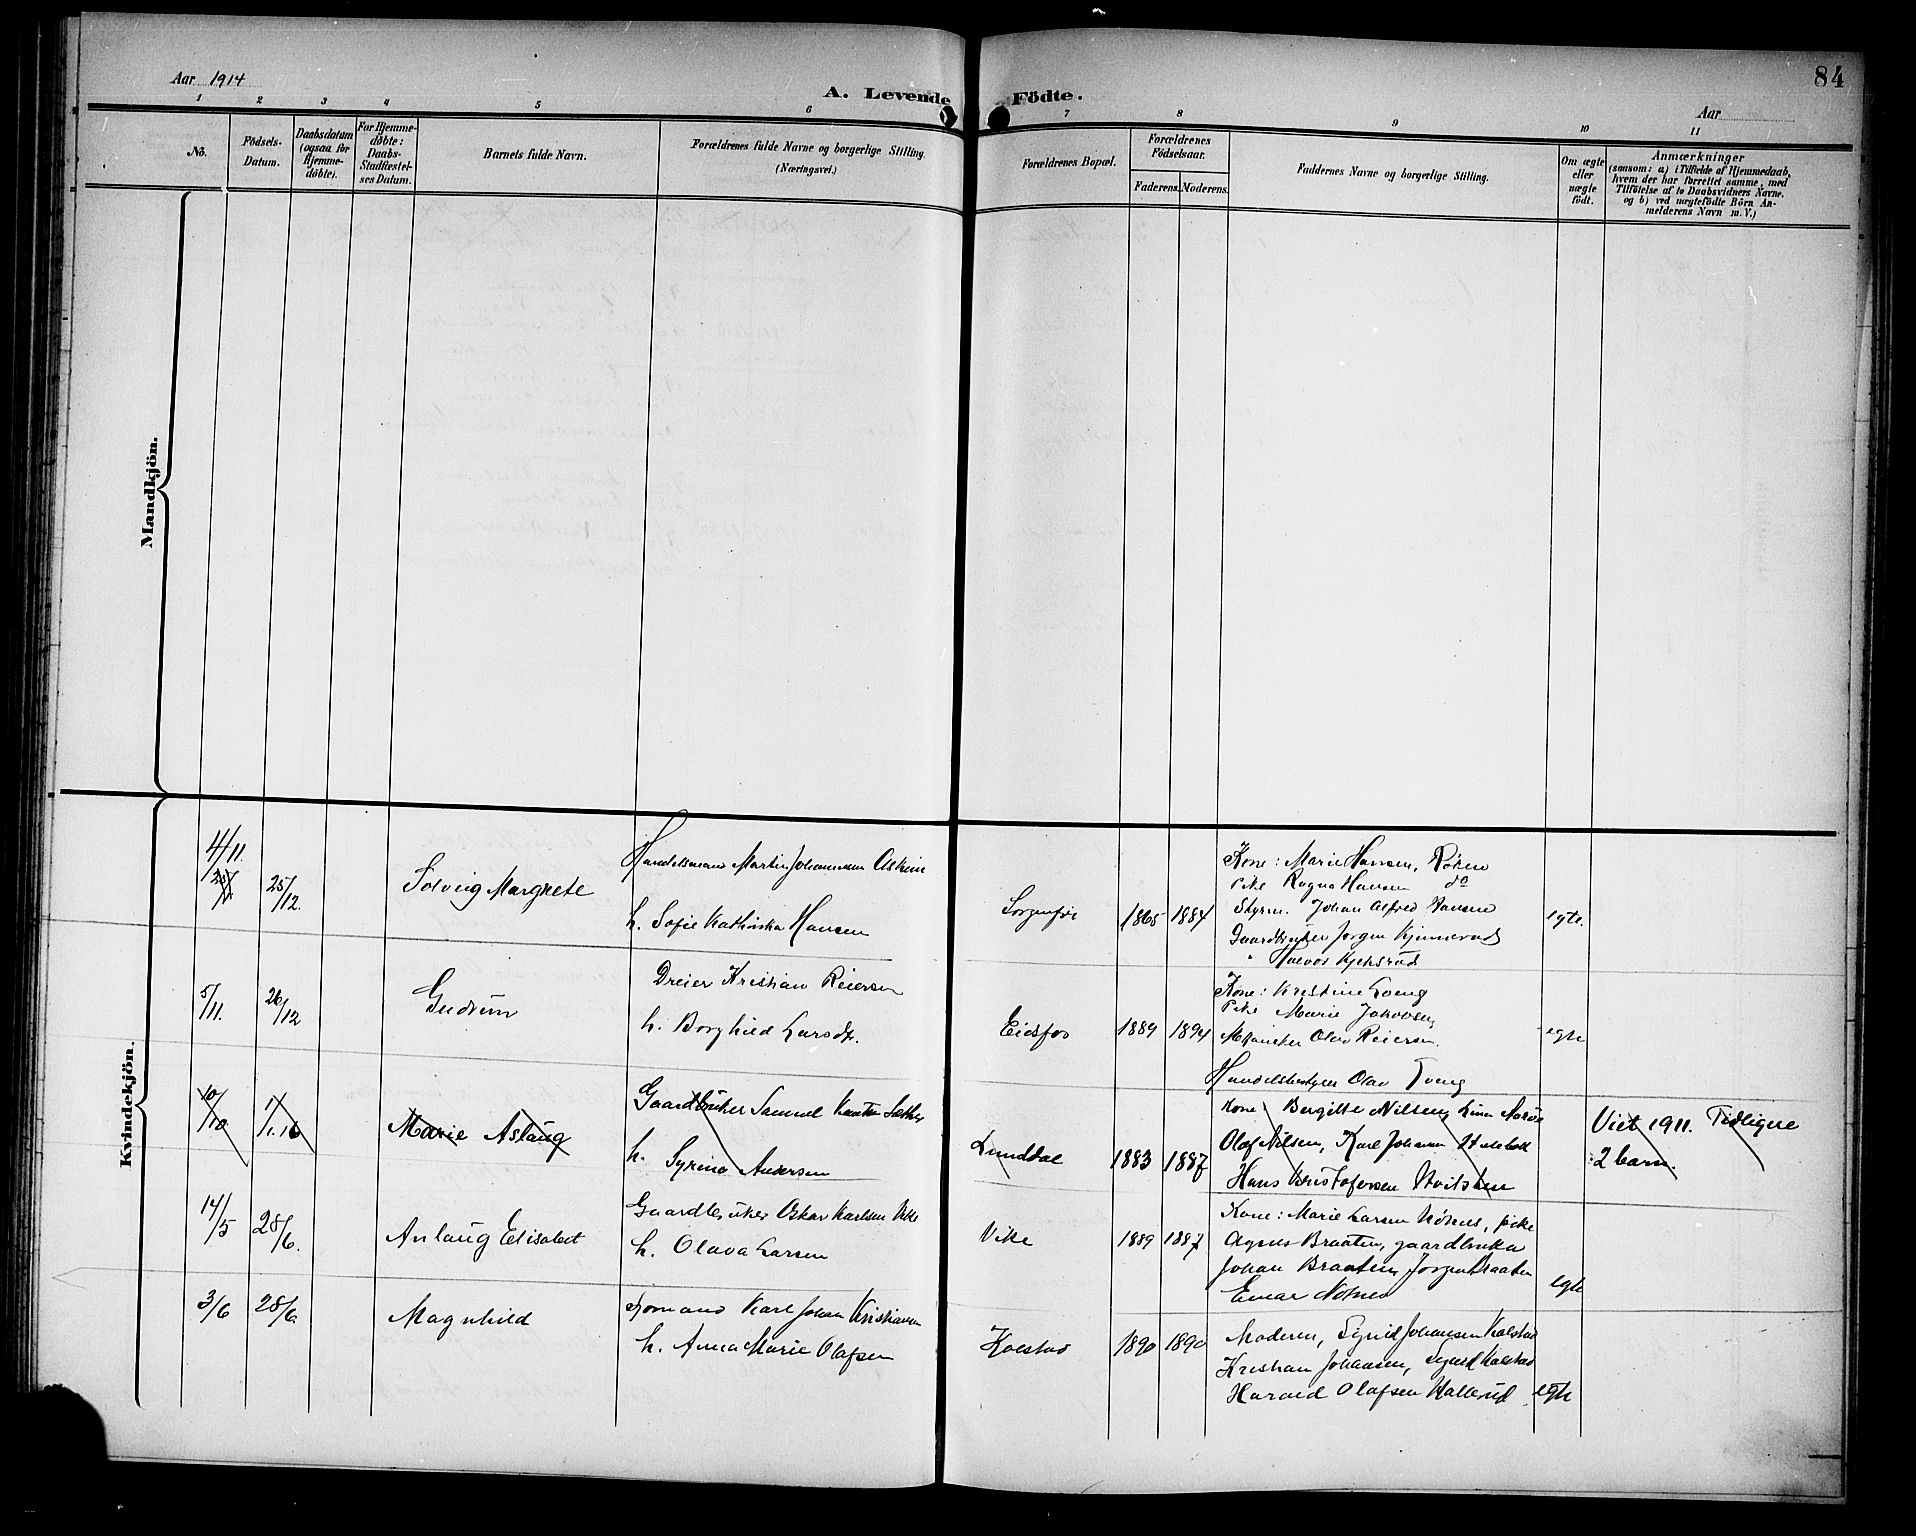 Aar 1914
A. Levende Födte.
84
Aar
1 2 3 4 5 6 7 8 9 10 11
Nô.
Födsels-Datum.
Daabsdatum (ogsaa for Hjemme-döbte).
For Hjemme-döbte: Daabs-Stadfæstel-ses Datum.
Barnets fulde Navn.
Forældrenes fulde Navne og borgerlige Stilling. (Næringsvei.)
Forældrenes Bopæl.
Forældrenes Födselsaar.
Faderens. Moderens.
Faddernes Navne og borgerlige Stilling.
Om ægte eller uægte födt.
Anmærkninger
(saasom: a) i Tilfælde af Hjemmedaab,
hvem der har forrettet samme, med
Tilföielse af to Daabsvidners Navne.
og b) ved uægtefödte Börn An-
melderens Navn m. V.)
Mandkjön.
Kvindekjön.
4/11. 25/12. Solveig Margrete
Handelsmand Martin Johannessen Askim
h. Sofie Kathinka Hansen
Sorgenfri 1865 1884
Kone: Marie Hansen, Røken
Pike Ragna Hansen do
Styrm. Johan Alfred Hansen
Gaardbruker Jørgen
" Halvor
egte.
5/11. 26/12 Gudrun
Dreier Kristian Reiersen
h. Borghild Larsdt.
Eidsfos 1889 1894
Kone: Kristine Tveng
Pike Marie Jakobsen
Olav Reiersen.
Handelsbestyrer Olav Tveng
egte
10/10 1/1.16 Marie Aslaug
Gaardbruker Samuel Knutsen
h. Syrina Andersen
Lunddal 1883 1887
Kone Bergitte Nilsen,
Olaf Nilsen, Karl Johansen
Hans Kristofersen
Viet 1911. Tidligere
2 barn.
14/5 28/6. Anlaug Elisabet
Gaardbruker Oskar Karlsen Vike
h. Olava Larsen
Vike 1889 1887
Kone: Marie Larsen, pike
Agnes Braaten, gaardbruker
Johan Braaten, Jørgen Braaten
Einar
egte
3/6 28/6 Magnhild
Karl Johan Kristiansen
h. Anna Marie Olafsen
Kolstad 1890 1890
Moderen, Sigrid Johansen Kolstad
Kristian Johansen, Sigurd Kolstad
Harald Olafsen Hallerud
egte